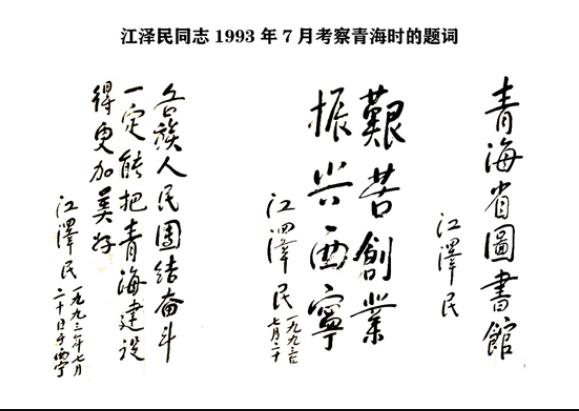 江泽民同志 1993 年 7 月考察青海时的题词
青海省圖書館
江澤民
艱苦創業
振兴西寧
江澤民
一九九三
七月二十
各族人民團结奋斗
一定能把青海建设
得更加美好
江澤民
一九九三年七月
二十日于西寧